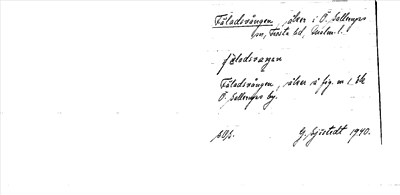 Fäladsvången, åker i Ö. Sallerups
sn, Frosta hd, Malm. l.
fäladsvaŋen
Fäladsvången, åker å fig. nr 1
Ö. Sallerups by.
G. Sjöstedt 1940.